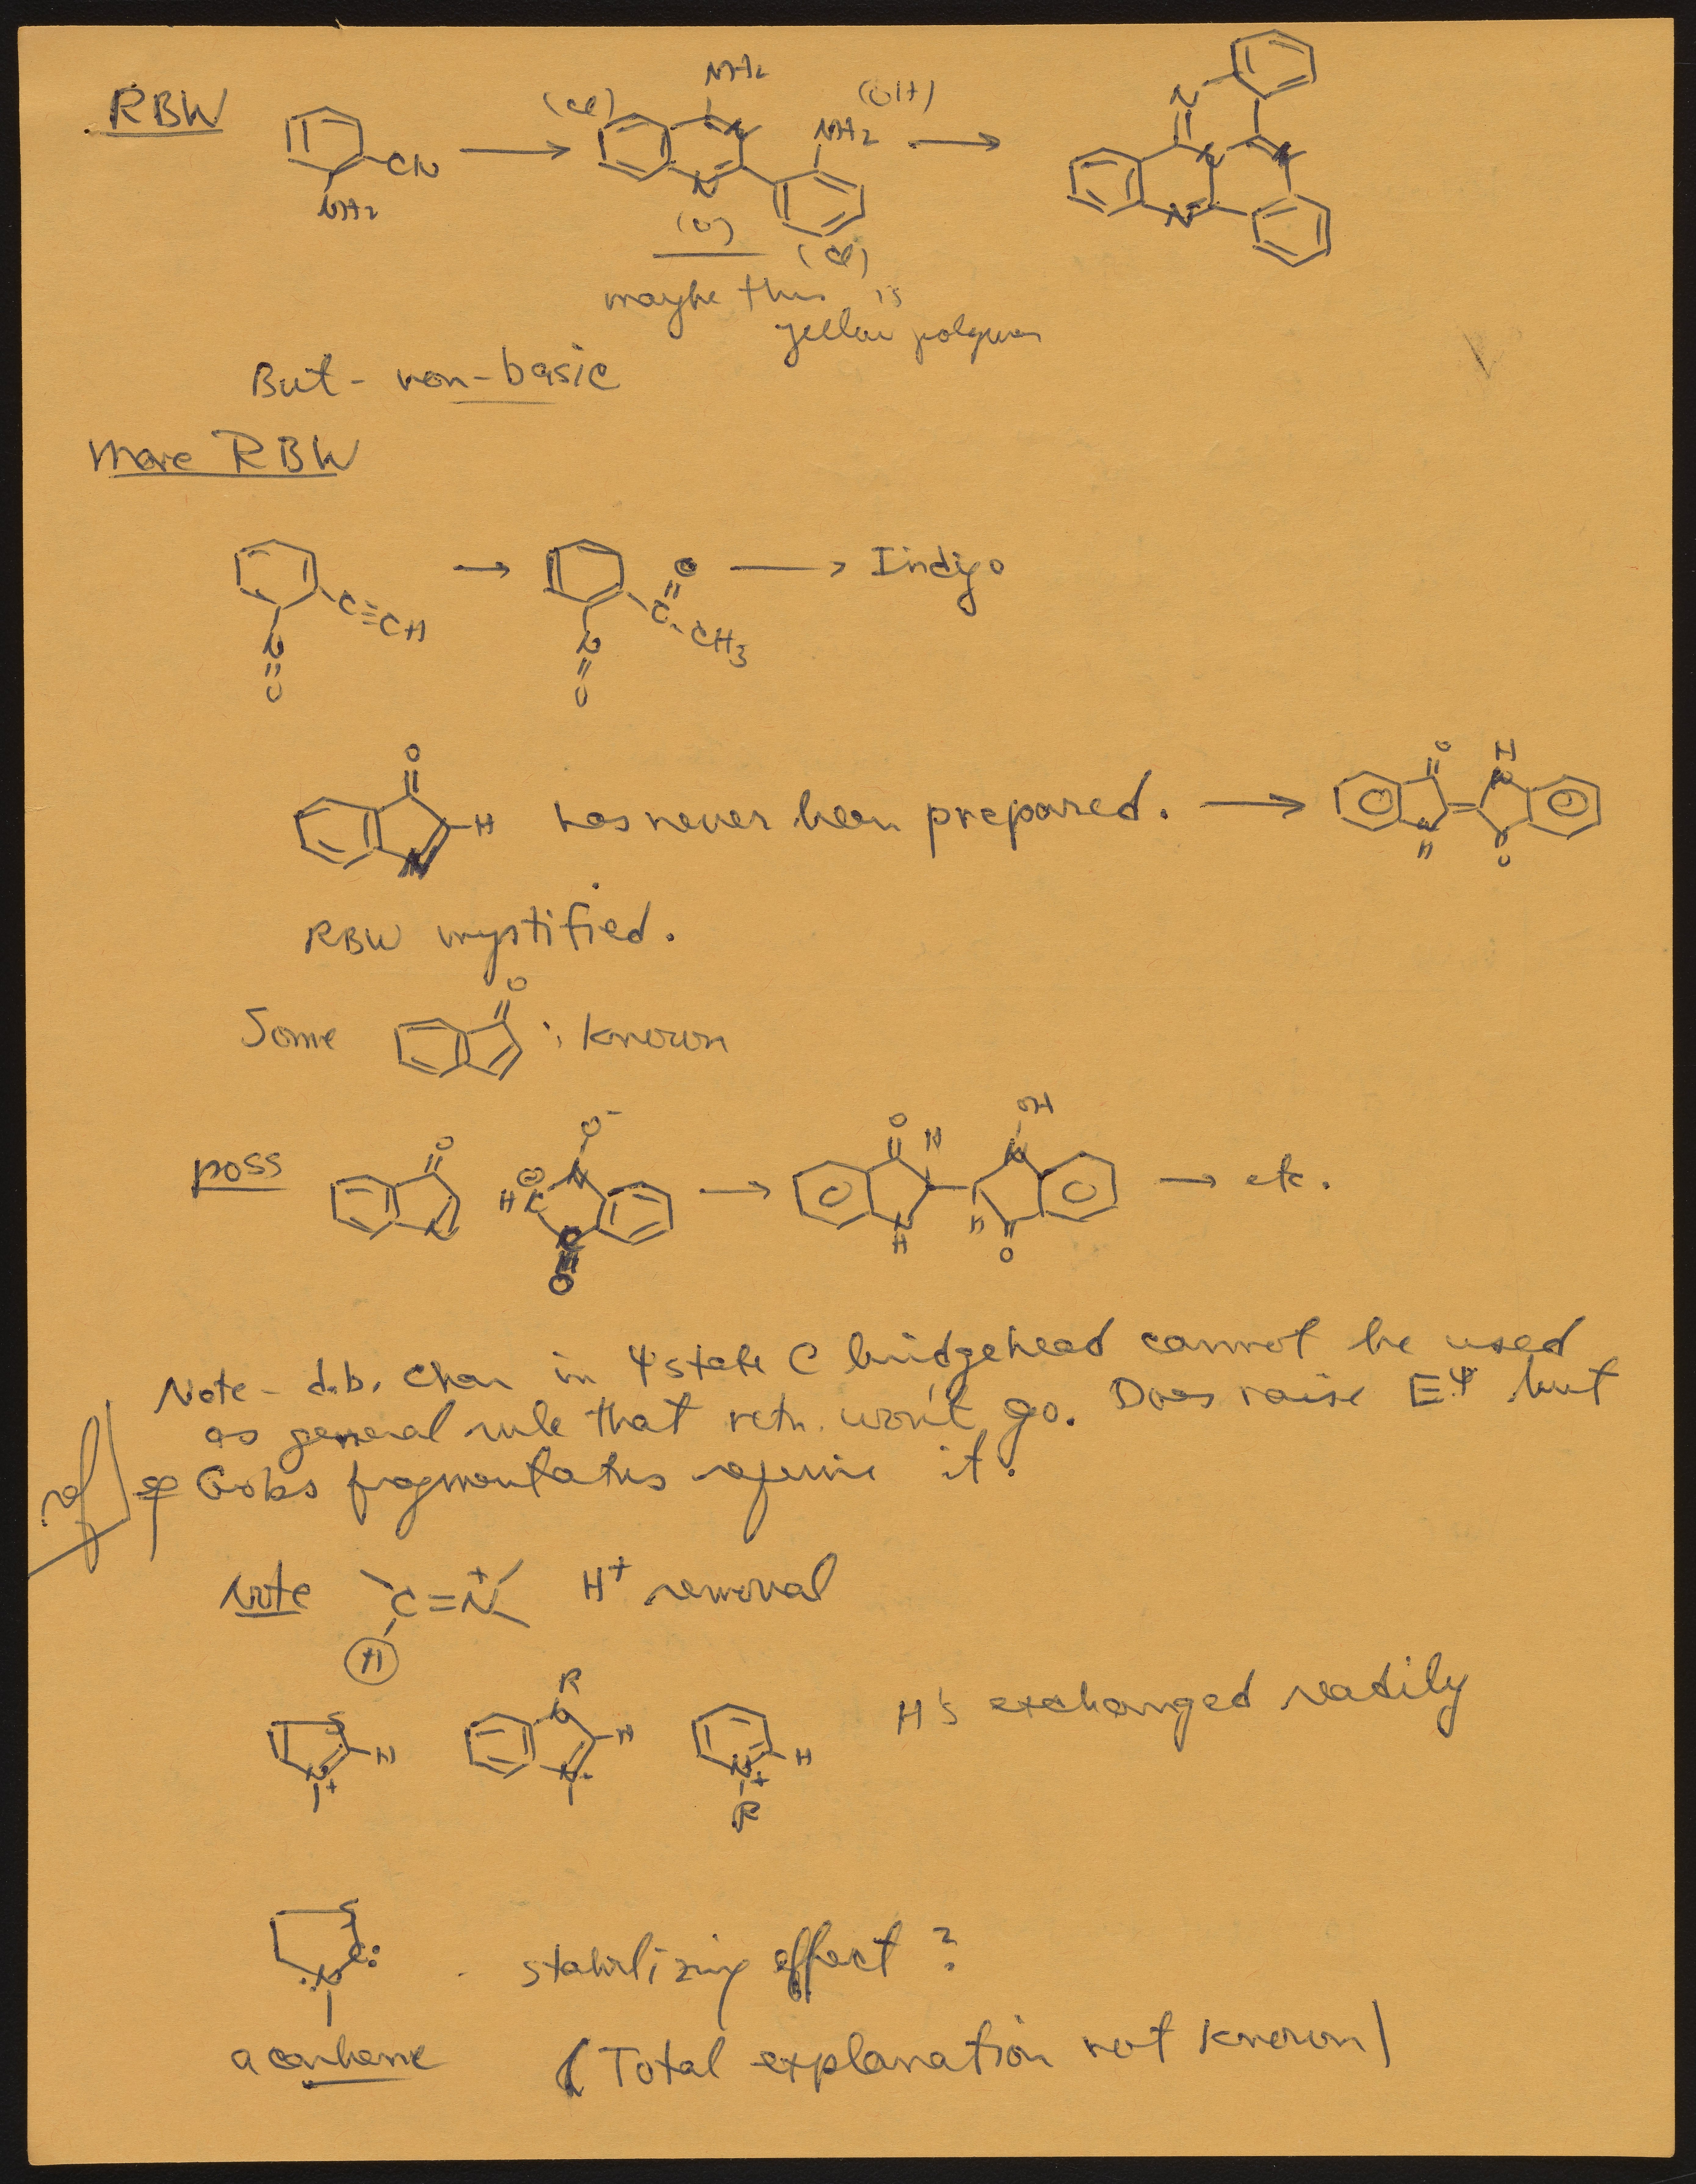 RBW
NH2
(Cl)
(OH)
NH2
CN
NH2
N
N
(Cl)
N
N
N
N
maybe this is
yellow polymer
But - non-basic
More RBW
C≡CH
N
=
O
O
=
C
CH3
N
=
O
Indigo
O
H
N
has never been prepared.
O
H
N
N
H
O
RBW mystified.
Some
O
; known
poss
O
N
O-
N
⊖
HC
C
O
O
H
N
H
OH
N
H
O
etc.
Note - d.b. char in Ψ state C bridgehead cannot be used
as general rule that rctn. won't go. Does raise EΨ but
Grobs fragmentations require it.
ref
Note
C=N+
H
H+ removal
S
H
N+
R
N
H
N
H
N+
R
H's exchanged readily
S
C:
:N
stabilizing effect?
a carbene
(Total explanation not known)